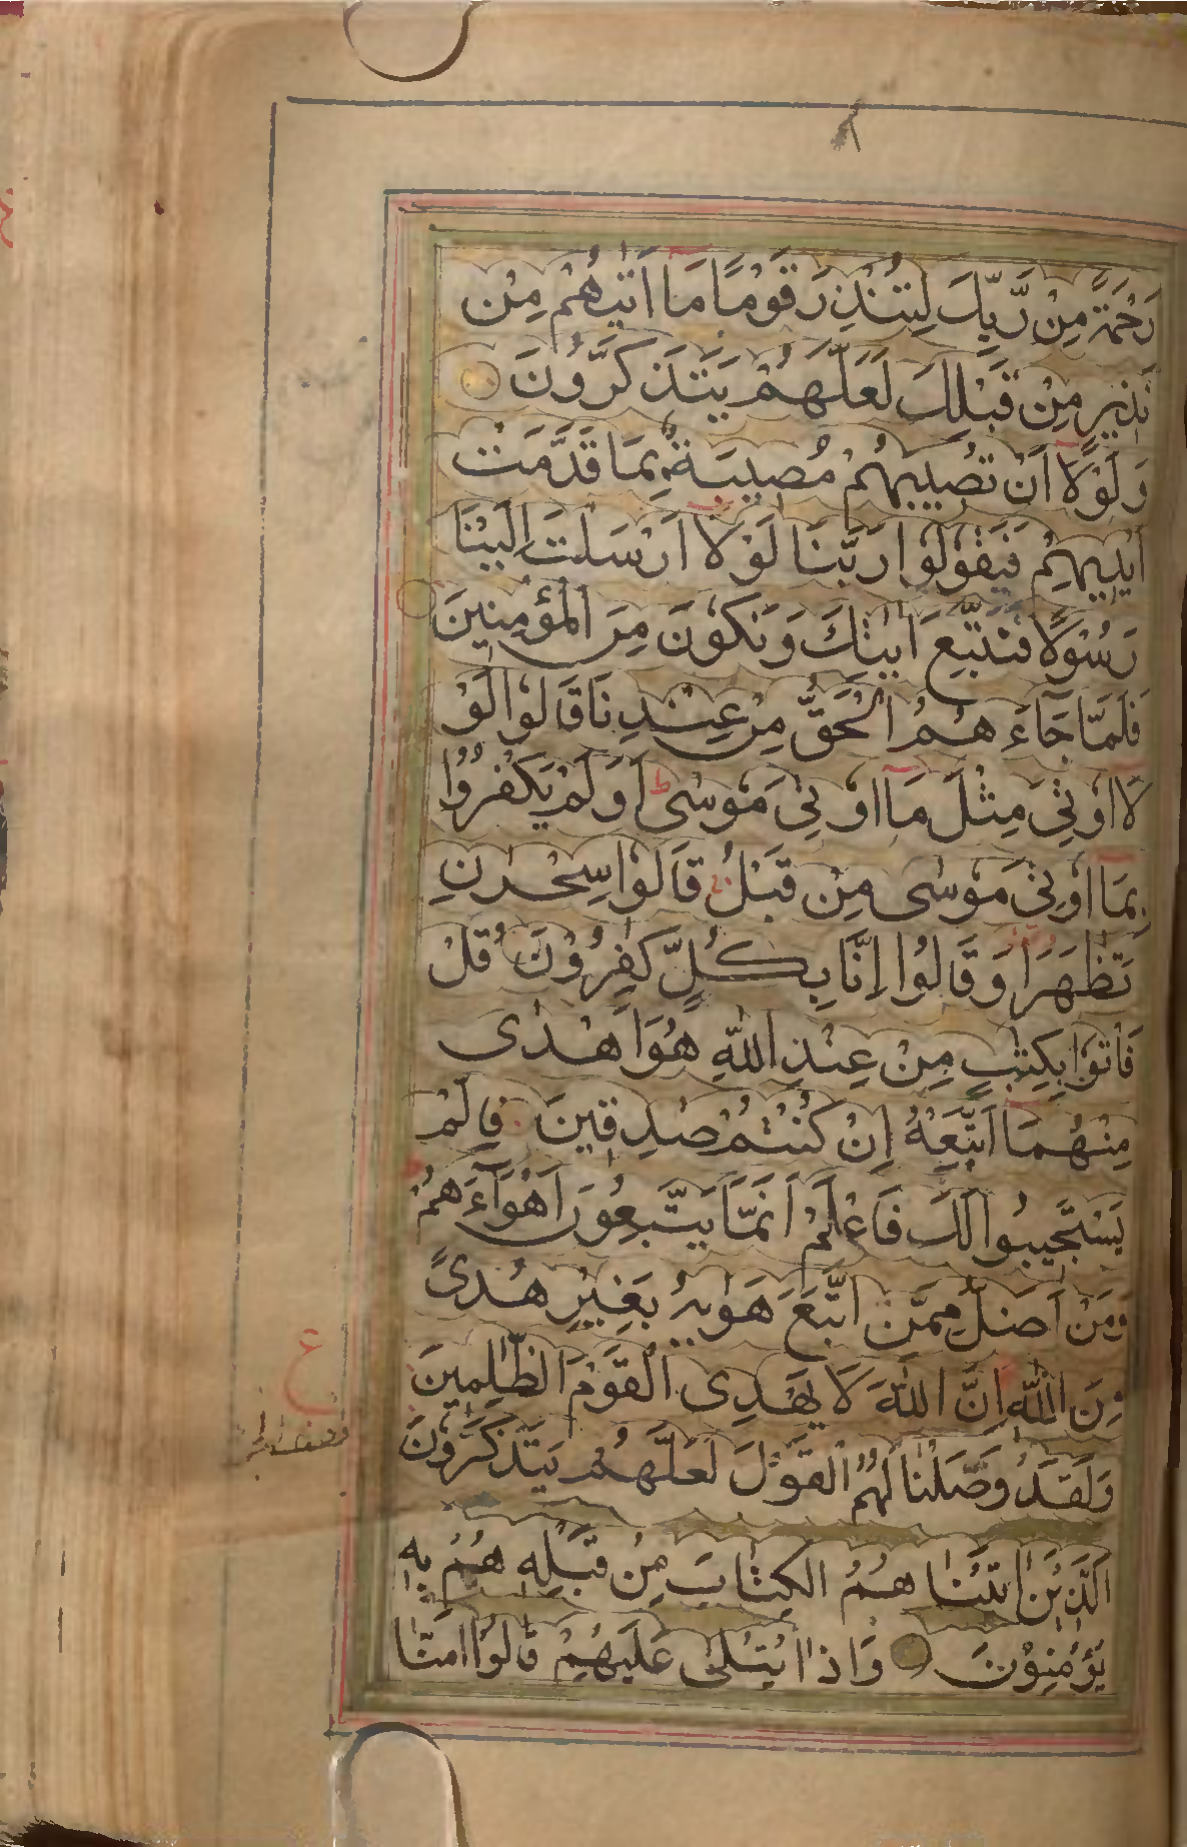 رَحْمَةً مِنْ رَّبِّكَ لِتُنْذِرَ قَوْمًا مَا اَتٰىهُمْ مِنْ
نَذِيْرٍ مِنْ قَبْلِكَ لَعَلَّهُمْ يَتَذَكَّرُوْنَ
وَلَوْلَا اَنْ تُصِيْبَهُمْ مُصِيْبَةٌ بِمَا قَدَّمَتْ
اَيْدِيْهِمْ فَيَقُوْلُوْا رَبَّنَا لَوْلَا اَرْسَلْتَ اِلَيْنَا
رَسُوْلًا فَنَتَّبِعَ اٰيٰتِكَ وَنَكُوْنَ مِنَ الْمُؤْمِنِيْنَ
فَلَمَّا جَآءَ هُمُ الْحَقُّ مِنْ عِنْدِنَا قَالُوْا لَوْ
لَا اُوْتِيَ مِثْلَ مَا اُوْتِيَ مُوْسٰى ط اَوَلَمْ يَكْفُرُوْا
بِمَا اُوْتِيَ مُوْسٰى مِنْ قَبْلُ قَالُوْا سِحْرٰنِ
تَظٰهَرَا وَقَالُوْا اِنَّا بِكُلٍّ كٰفِرُوْنَ قُلْ
فَاْتُوْا بِكِتٰبٍ مِنْ عِنْدِ اللّٰهِ هُوَ اَهْدٰى
مِنْهُمَا اَتَّبِعْهُ اِنْ كُنْتُمْ صٰدِقِيْنَ فَاِلَمْ
يَسْتَجِيْبُوْا لَكَ فَاعْلَمْ اَنَّمَا يَتَّبِعُوْنَ اَهْوَآءَهُمْ
وَمَنْ اَضَلُّ مِمَّنِ اتَّبَعَ هَوٰىهُ بِغَيْرِ هُدًى
مِنَ اللّٰهِ اِنَّ اللّٰهَ لَا يَهْدِى الْقَوْمَ الظّٰلِمِيْنَ
ع
وَلَقَدْ وَصَّلْنَا لَهُمُ الْقَوْلَ لَعَلَّهُمْ يَتَذَكَّرُوْنَ
اَلَّذِيْنَ اٰتَيْنَا هُمُ الكِتٰابَ مِنْ قَبْلِهٖ هُمْ بِهٖ
يُؤْمِنُوْنَ وَاِذَا يُتْلٰى عَلَيْهِمْ قَالُوْا اٰمَنَّا